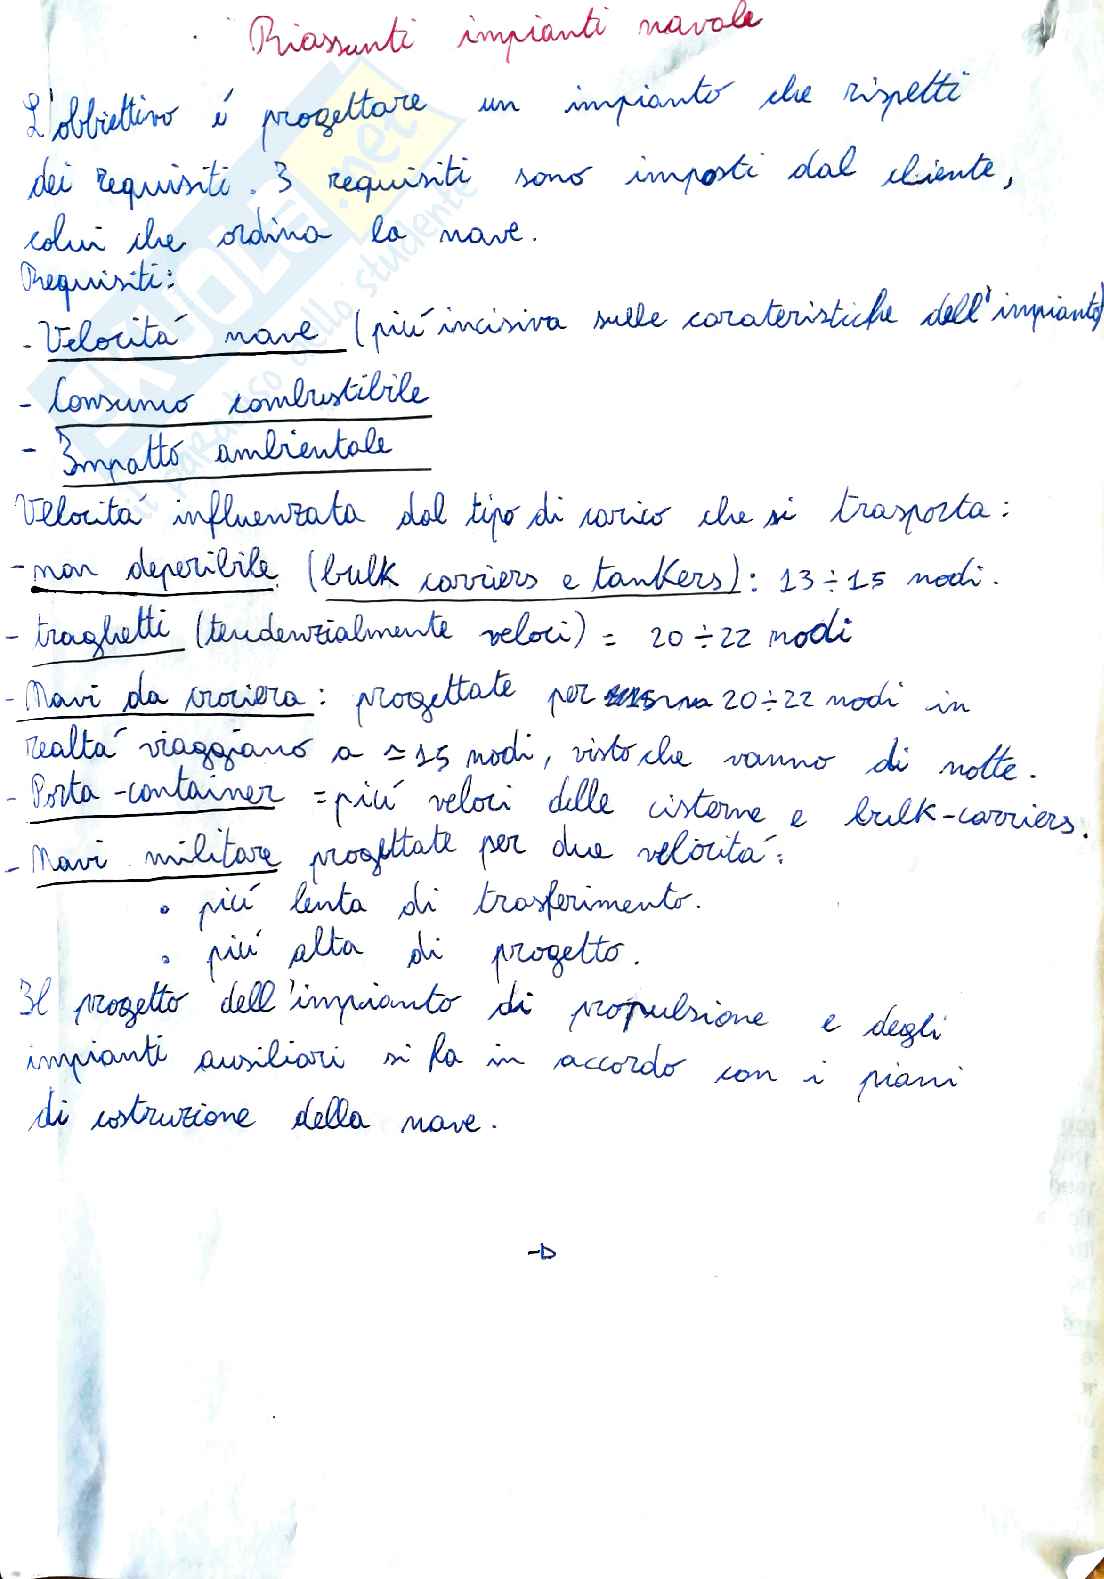 Riassunti impianti navale
L'obbiettivo é progettare un impianto che rispetti
dei requisiti. I requisiti sono imposti dal cliente,
colui che ordina la nave.
Requisiti:
- Velocitá nave (piú incisiva sulle carateristiche dell'impianto)
- Consumo combustibile
- Impatto ambientale
Velocitá influenzata dal tipo di carico che si trasporta:
- non deperibile (bulk carriers e tankers): 13÷15 nodi.
- traghetti (tendenzialmente veloci) = 20÷22 nodi
- Navi da crociera: progettate per 20÷22 nodi in
realtá viaggiano a ≃15 nodi, visto che vanno di notte.
- Porta-container = piú veloci delle cisterne e bulk-carriers.
- Navi militare progettate per due velocitá:
• piú lenta di trasferimento.
• piú alta di progetto.
Il progetto dell'impianto di propulsione e degli
impianti ausiliari si fa in accordo con i piani
di costruzione della nave.
SKUOLA.net
il paradiso dello studente